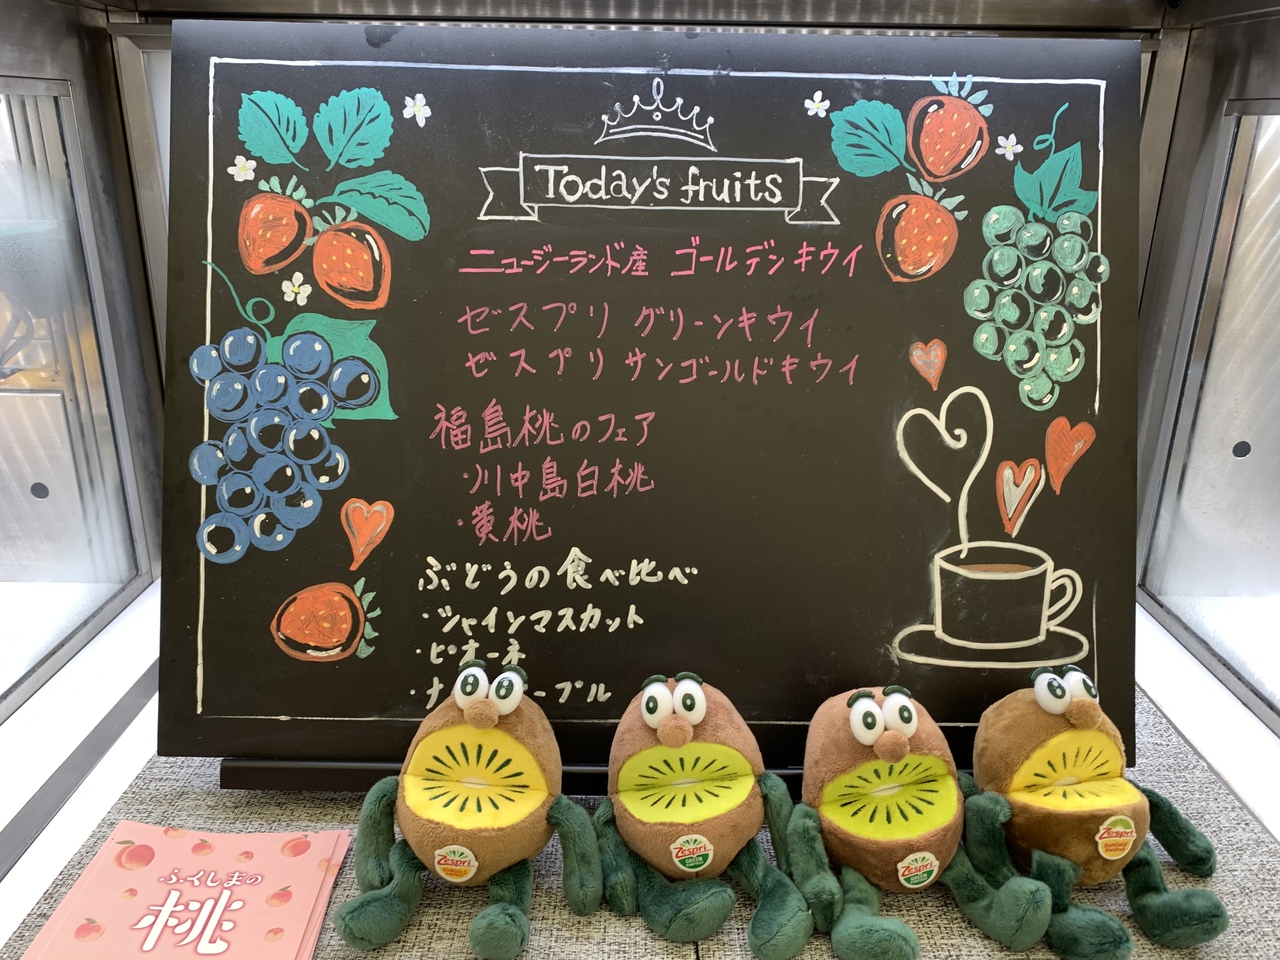 Today's fruits
ニュージーランド産 ゴールデンキウイ
ゼスプリ グリーンキウイ
ゼスプリ サンゴールドキウイ
福島桃のフェア
・川中島白桃
・黄桃
ぶどうの食べ比べ
・シャインマスカット
・ピオーネ
・ナ
ープル
Zespri
Zespri
GREEN
Zespri
GREEN
Zespri
SunGold
ふくしまの
桃